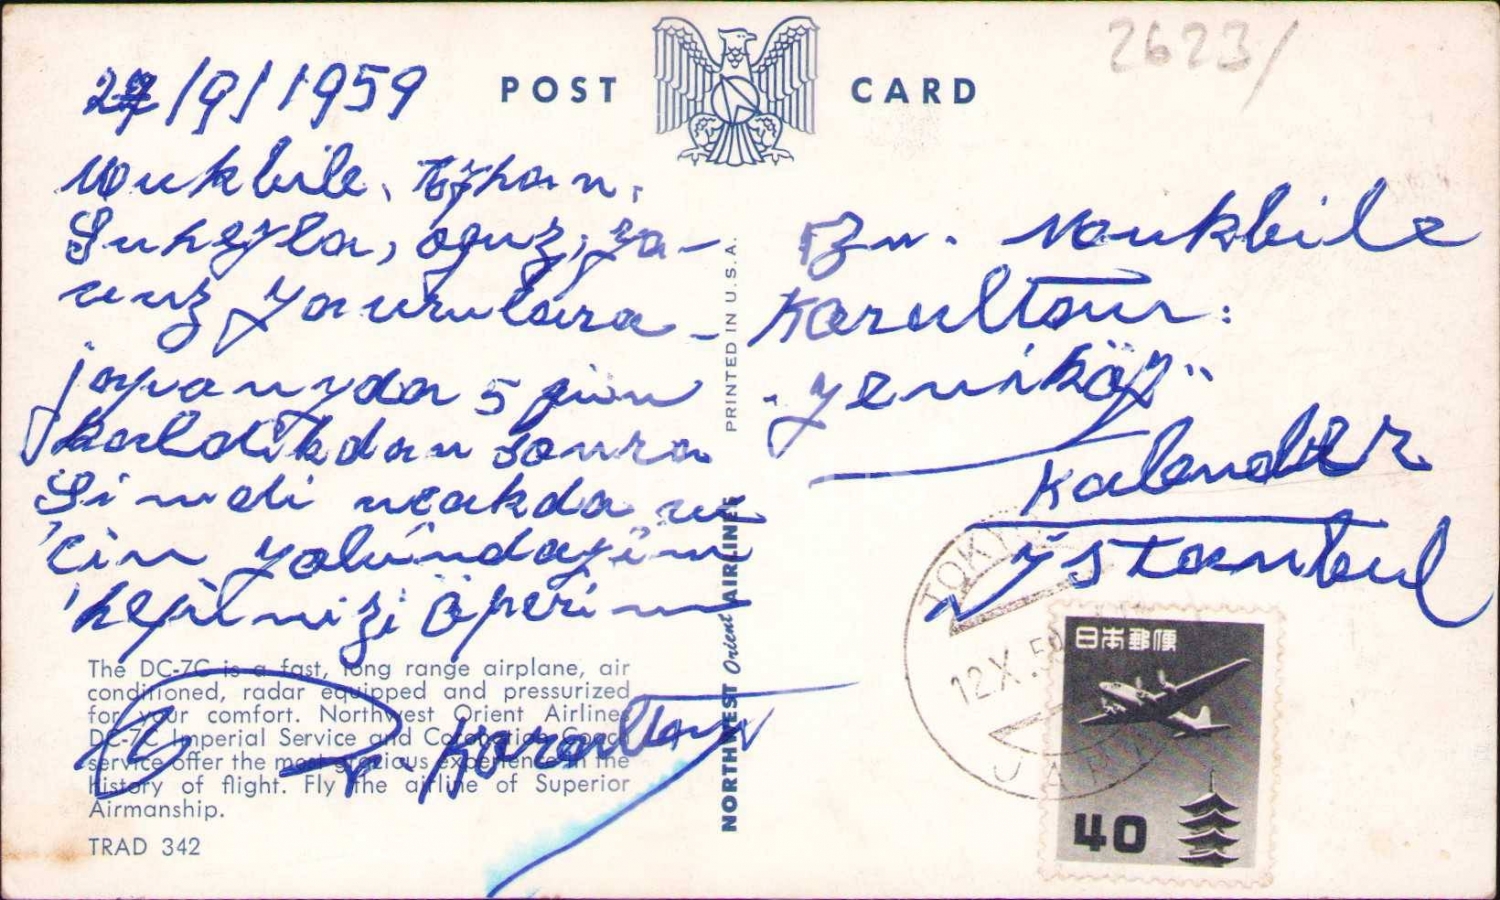 2623/
POST CARD
/9/1959
Mukbile,
Suheyla, oguz, ya-
vuz yavrulara -
japanyada 5 gün
kaldıkdan sonra
Simdi uçakda
hepinizi öperim
Karaltour
Bn. Mukbile
Karaltour:
"yeniköy"
Kalender
ystanbul
PRINTED IN U.S.A.
NORTHWEST Orient AIRLINES
The DC-7C is a fast, long range airplane, air
conditioned, radar equipped and pressurized
for your comfort. Northwest Orient Airlines
DC-7C Imperial Service and Coronation Coach
service offer the most gracious experience in the
history of flight. Fly the airline of Superior
Airmanship.
TRAD 342
TOKYO
12.X.59
JAPAN
日本郵便
40